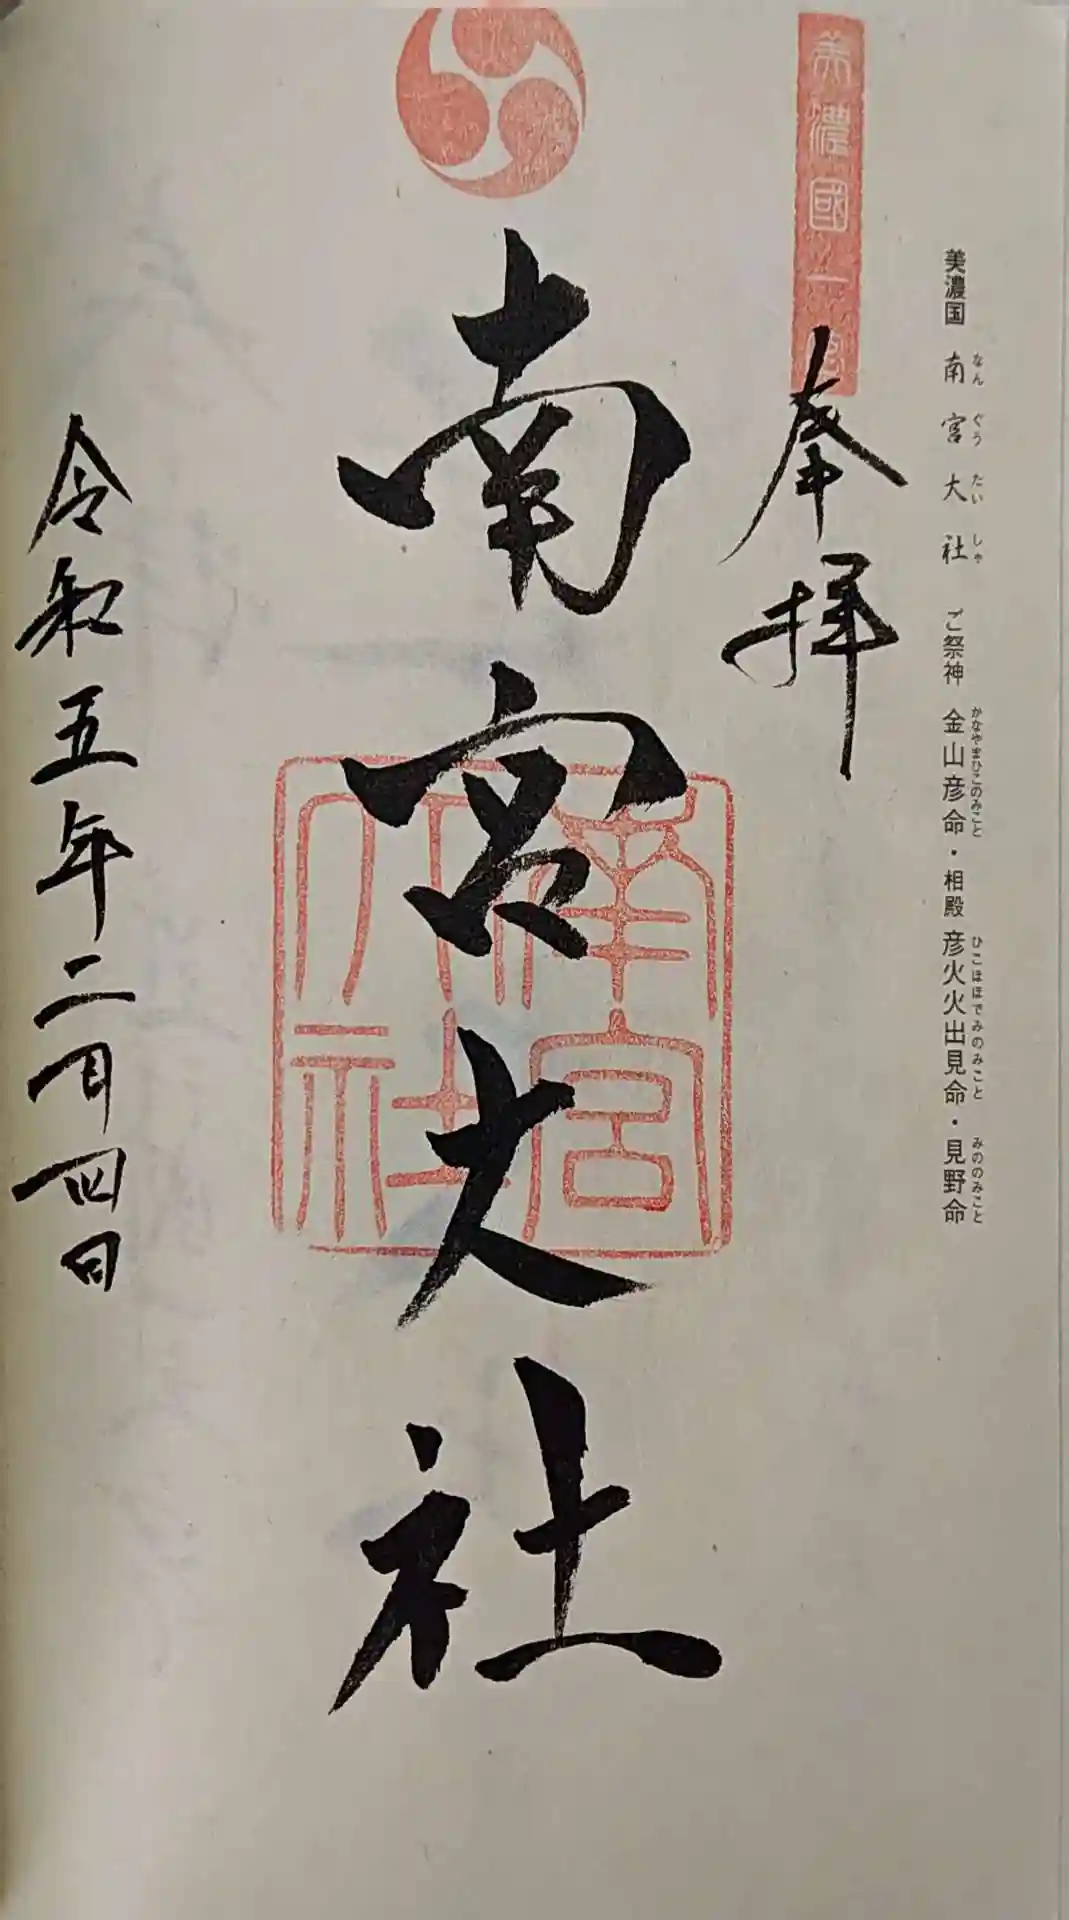 美濃国 南宮大社 ご祭神 金山彦命・相殿 彦火火出見命・見野命
なん ぐう たい しゃ かなやまひこのみこと ひこほほでみのみこと みののみこと
美濃國一宮
奉拝
南宮大社
南宮大社
令和五年二月四日